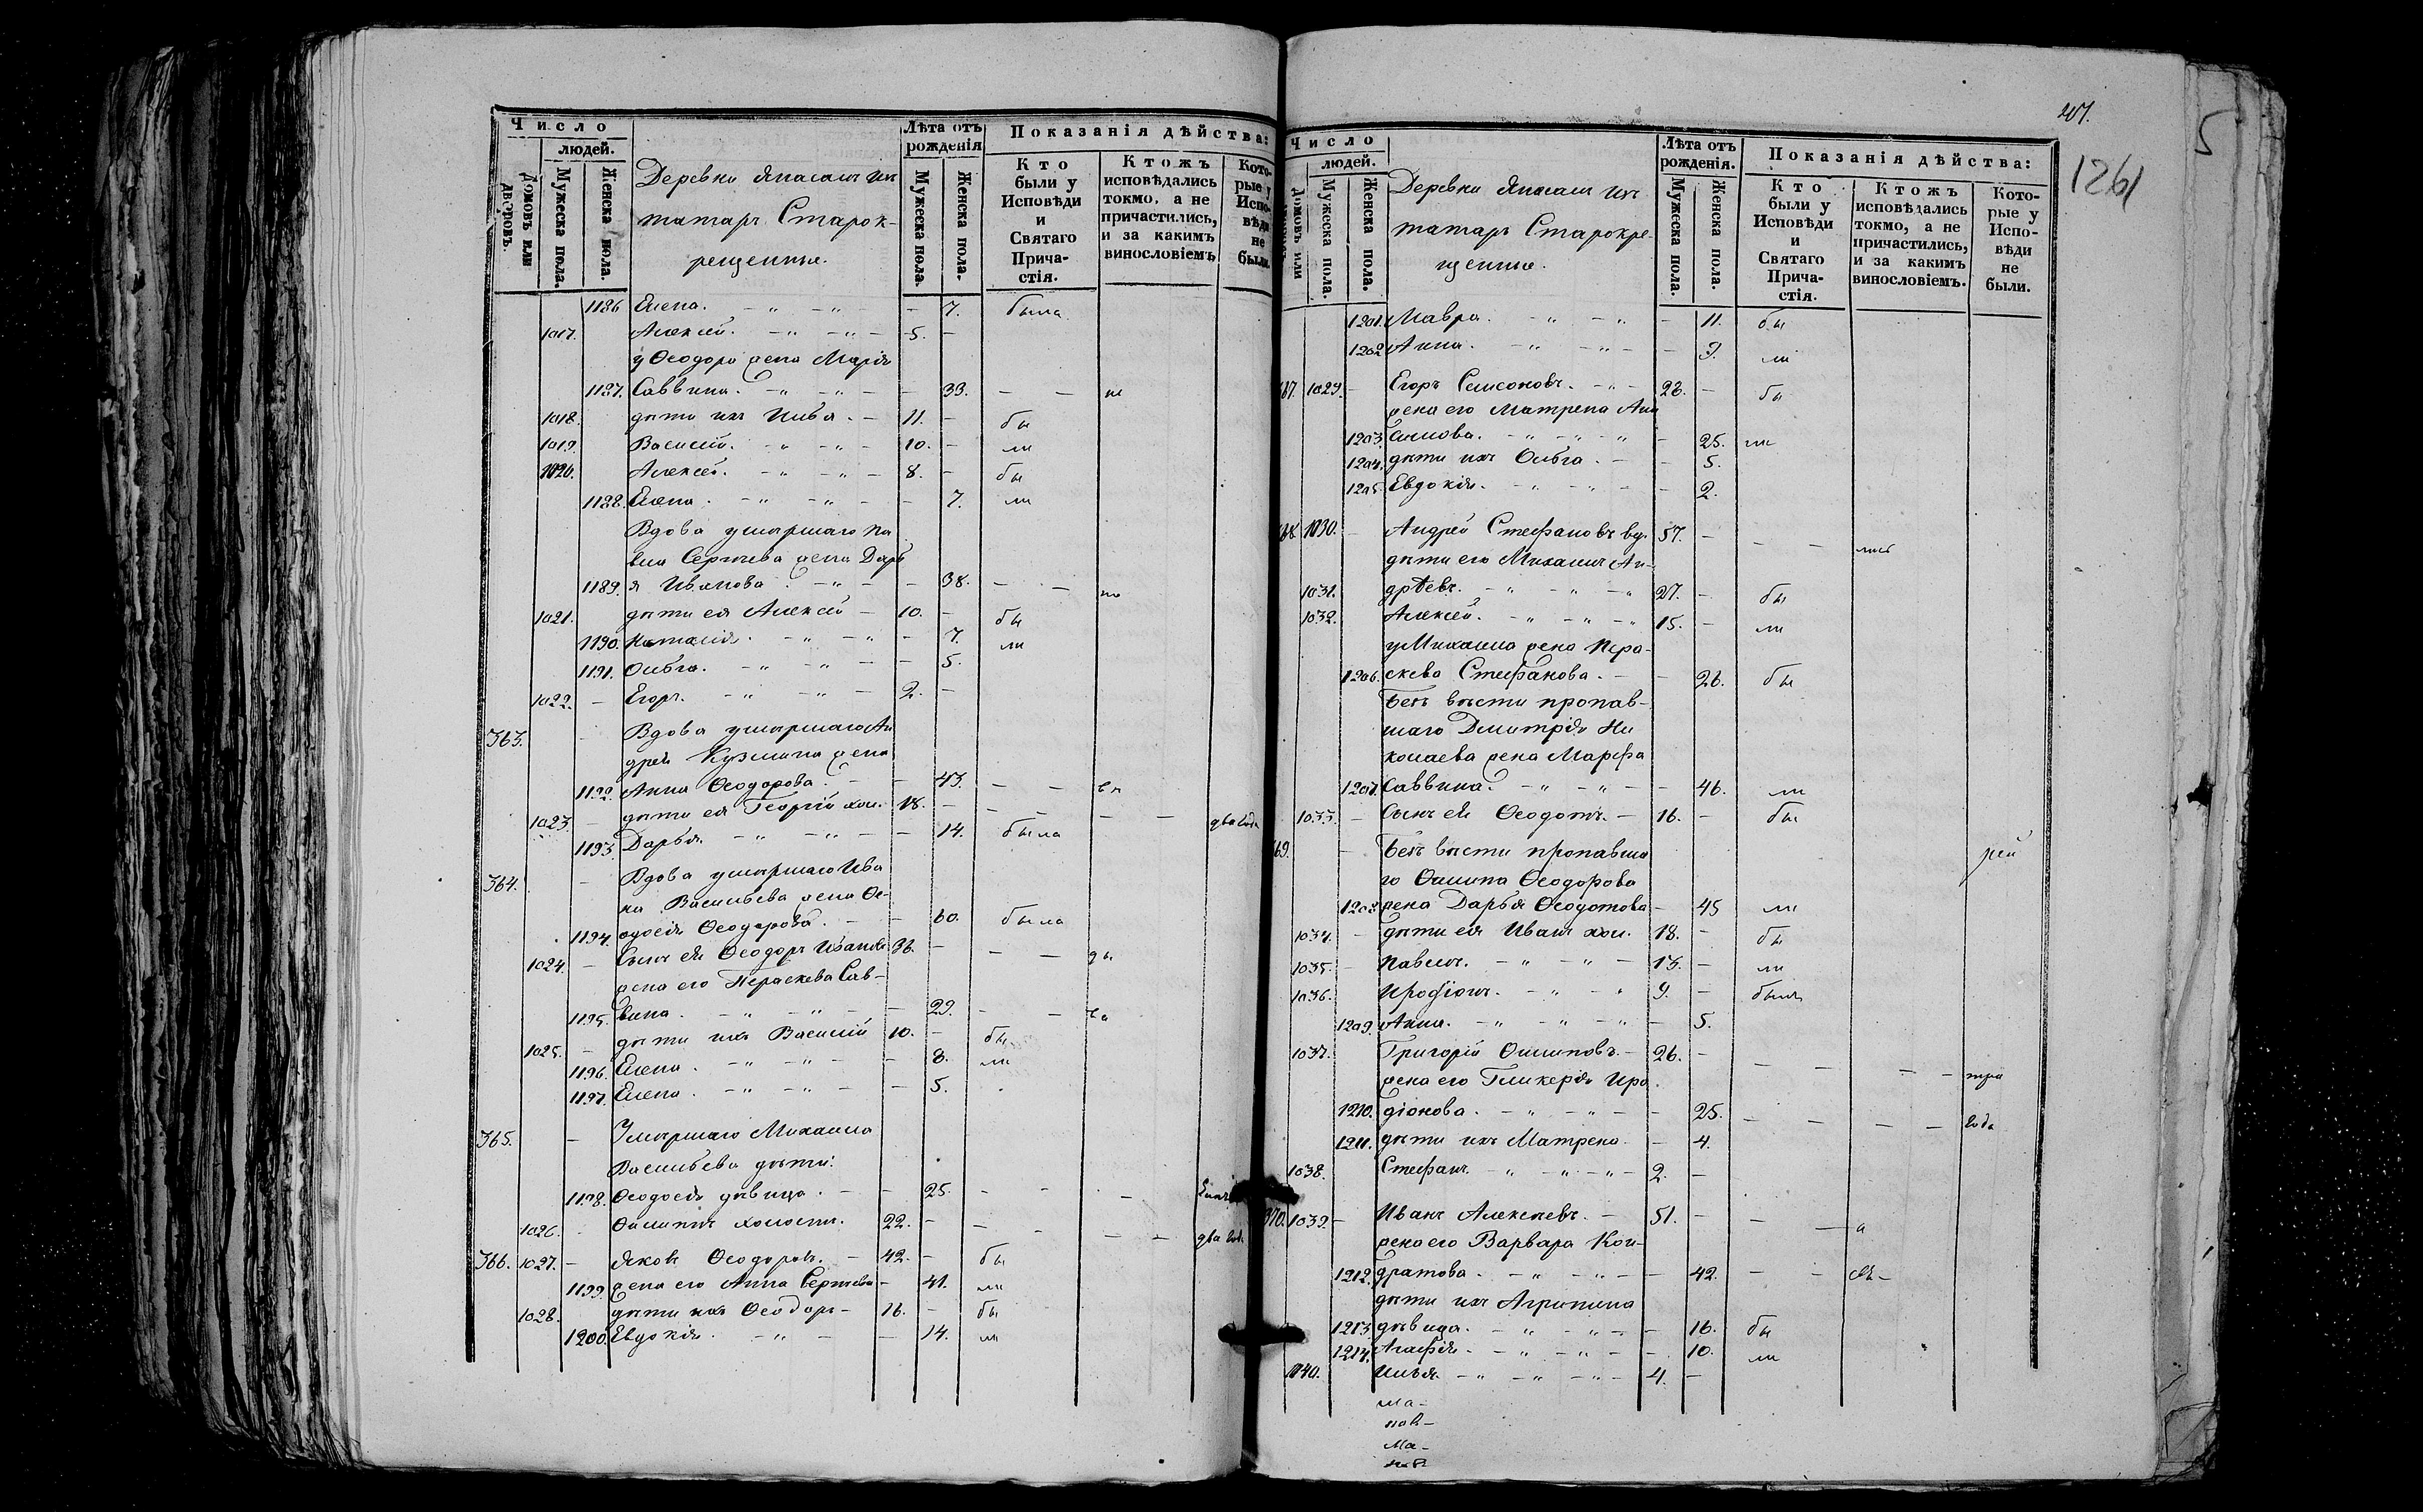 Число
людей.
Домовъ или дворовъ.
Мужеска пола.
Женска пола.
Деревни Япасали изъ
татаръ Старок-
рещенные.
Лѣта отъ рожденія
Мужеска пола.
Женска пола.
Показанія дѣйства:
Кто были у Исповѣди и Святаго Причастія.
Ктожъ исповѣдались токмо, а не причастились, и за какимъ винословіемъ
Которые у Исповѣди не были.
1186 Елена. 7. была
1017. Алексѣй. 5. -
у Ѳеодора жена Марія
1187. Саввина. 33. - -
1018. дѣти ихъ Илья. 11. - бы
1019. Василій. 10. - ли
1020. Алексѣй. 8. - бы
1188. Елена. 7. ли
Вдова умершаго Па
вла Сергѣева жена Дарь
1189. я Иванова 38. - -
1021. дѣти ея Алексѣй 10. - бы
1190. Наталія. 7. ли
1191. Ольга. 5.
1022. Егоръ. 2. -
363. Вдова умершаго Ан
дрея Кузмина жена
1192. Анна Ѳеодорова. 43. - -
1023. дѣти ея Георгій хол. 18. - два года
1193. Дарья. 14. была
364. Вдова умершаго Ива
на Васильева жена Ѳе-
1194. одосія Ѳеодорова. 60. была
1024. Сынъ ея Ѳеодоръ Ивановъ 36. - -
жена его Параскева Сав-
1195. вина. 29. - -
1025. дѣти ихъ Василій 10. - бы
1196. Елена. 8. ли
1197. Елена. 5.
365. Умершаго Михаила
Васильева дѣти:
1198. Ѳеодосія дѣвица. 25. - -
1026. Филиппъ холостъ. 22. - - два года
366. 1027. Яковъ Ѳеодоровъ. 42. - бы
1199. жена его Анна Сергѣева 41. ли
1028. дѣти ихъ Ѳеодоръ 16. - бы
1200. Евдокія. 14. ли
207.
1261
5
Число
людей.
Домовъ или
Мужеска пола.
Женска пола.
Деревни Япасали изъ
татаръ Старокре-
щенные.
Лѣта отъ рожденія.
Мужеска пола.
Женска пола.
Показанія дѣйства:
Кто были у Исповѣди и Святаго Причастія.
Ктожъ исповѣдались токмо, а не причастились, и за какимъ винословіемъ.
Которые у Исповѣди не были.
1201. Мавра. 11. бы
1202 Анна. 9. ли
1029. Егоръ Самсоновъ. 28. - бы
жена его Матрена Ани
1203. симова. 25. ли
1204. дѣти ихъ Ольга. 5.
1205. Евдокія. 2.
1030. Андрей Стефановъ вд. 57. - -
дѣти его Михаилъ Ан-
1031. дрѣевъ. 27. - бы
1032. Алексѣй. 15. - ли
у Михаила жена Пара-
1206. скева Стефанова. 26. бы
Безъ вѣсти пропав-
шаго Димитрія Ни
колаева жена Марфа
1207. Саввина. 46. ли
1033. Сынъ ея Ѳеодотъ. 16. - бы
Безъ вѣсти пропавша
го Филипа Ѳеодорова
1208. жена Дарья Ѳеодотова 45 ли
1034. дѣти ея Иванъ хол. 18. - бы
1035. Павелъ. 13. - ли
1036. Иродіонъ. 9. - были
1209. Анна. 5.
1037. Григорій Филиповъ. 26. - - три
жена его Гликерія Иро
1210. діонова. 25. - - года
1211. дѣти ихъ Матрена. 4.
1038. Стефанъ. 2. -
370. 1039. Иванъ Алексѣевъ. 51. - -
жена его Варвара Кон-
1212. дратова. 42. - -
дѣти ихъ Агрипина
1213. дѣвица. 16. бы
1214. Агафія. 10. ли
1040. Илья. 4. -